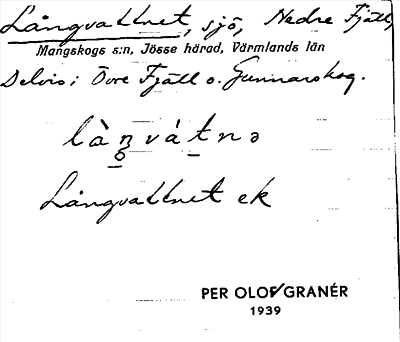 Långvattnet, sjö, Nedre Fjäll,
Mangskogs s:n, Jösse härad, Värmlands län
Delvis i Övre Fjäll o. Gunnarskog.
làŋ̥vátnə
Långvattnet ek
PER OLOF GRANÉR
1939